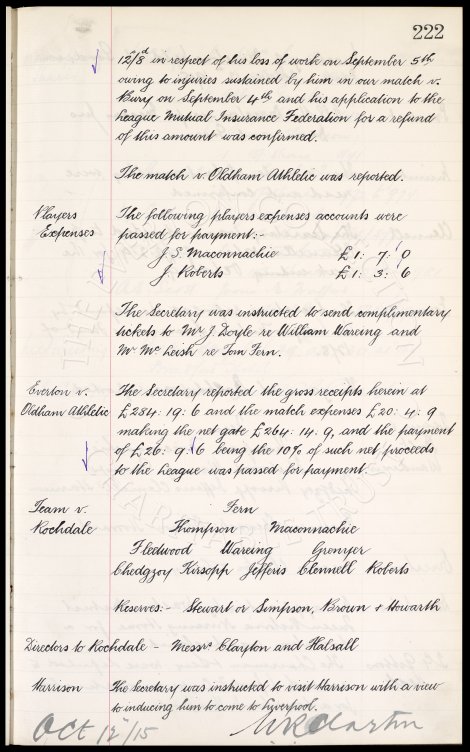 222
12/8d in respect of his loss of work on September 5th
owing to injuries sustained by him in our match v.
Bury on September 4th and his application to the
League Mutual Insurance Federation for a refund
of this amount was confirmed.
The match v. Oldham Athletic was reported.
Players The following players expenses accounts were
Expenses passed for payment:-
J. S. Maconnachie £1: 7: 0
J. Roberts £1: 3: 6
The Secretary was instructed to send complimentary
tickets to Mr J. Doyle re William Wareing and
Mr McLeish re Tom Fern.
Everton v. The Secretary reported the gross receipts herein at
Oldham Athletic £284: 19: 6 and the match expenses £20: 4: 9
making the net gate £264: 14: 9, and the payment
of £26: 9: 6 being the 10% of such net proceeds
to the League was passed for payment.
Team v. Fern
Rochdale Thompson Maconnachie
Fleetwood Wareing Grenyer
Chedgzoy Kirsopp Jefferis Clennell Roberts
Reserves:- Stewart or Simpson, Brown + Howarth
Directors to Rochdale - Messrs Clayton and Halsall
Harrison The Secretary was instructed to visit Harrison with a view
to inducing him to come to Liverpool.
Oct 12/15 W R Clayton